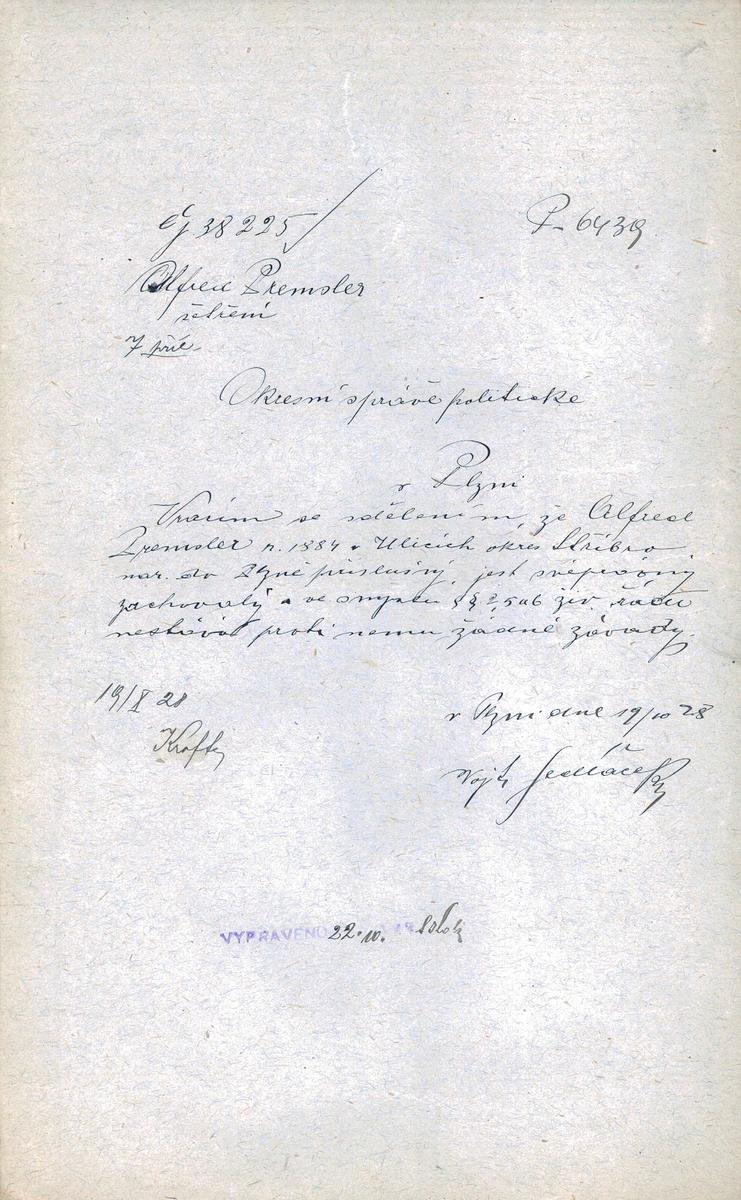 čj 38225
P-6439
Alfred Premsler
šetření
7 příl.
Okresní správě politické
v Plzni
Vracím se sdělením, že Alfred
Premsler n. 1884 v Ulicích okres Stříbro
nar. do Plzně příslušný, jest svéprávný
zachovalý a ve smyslu §§ 2,5 a 6 živ. řádu
nestává proti němu žádné závady.
19/X 28
v Plzni dne 19/10 28
Krofta
Vojt. Sedláček
VYPRAVENO 22.10.